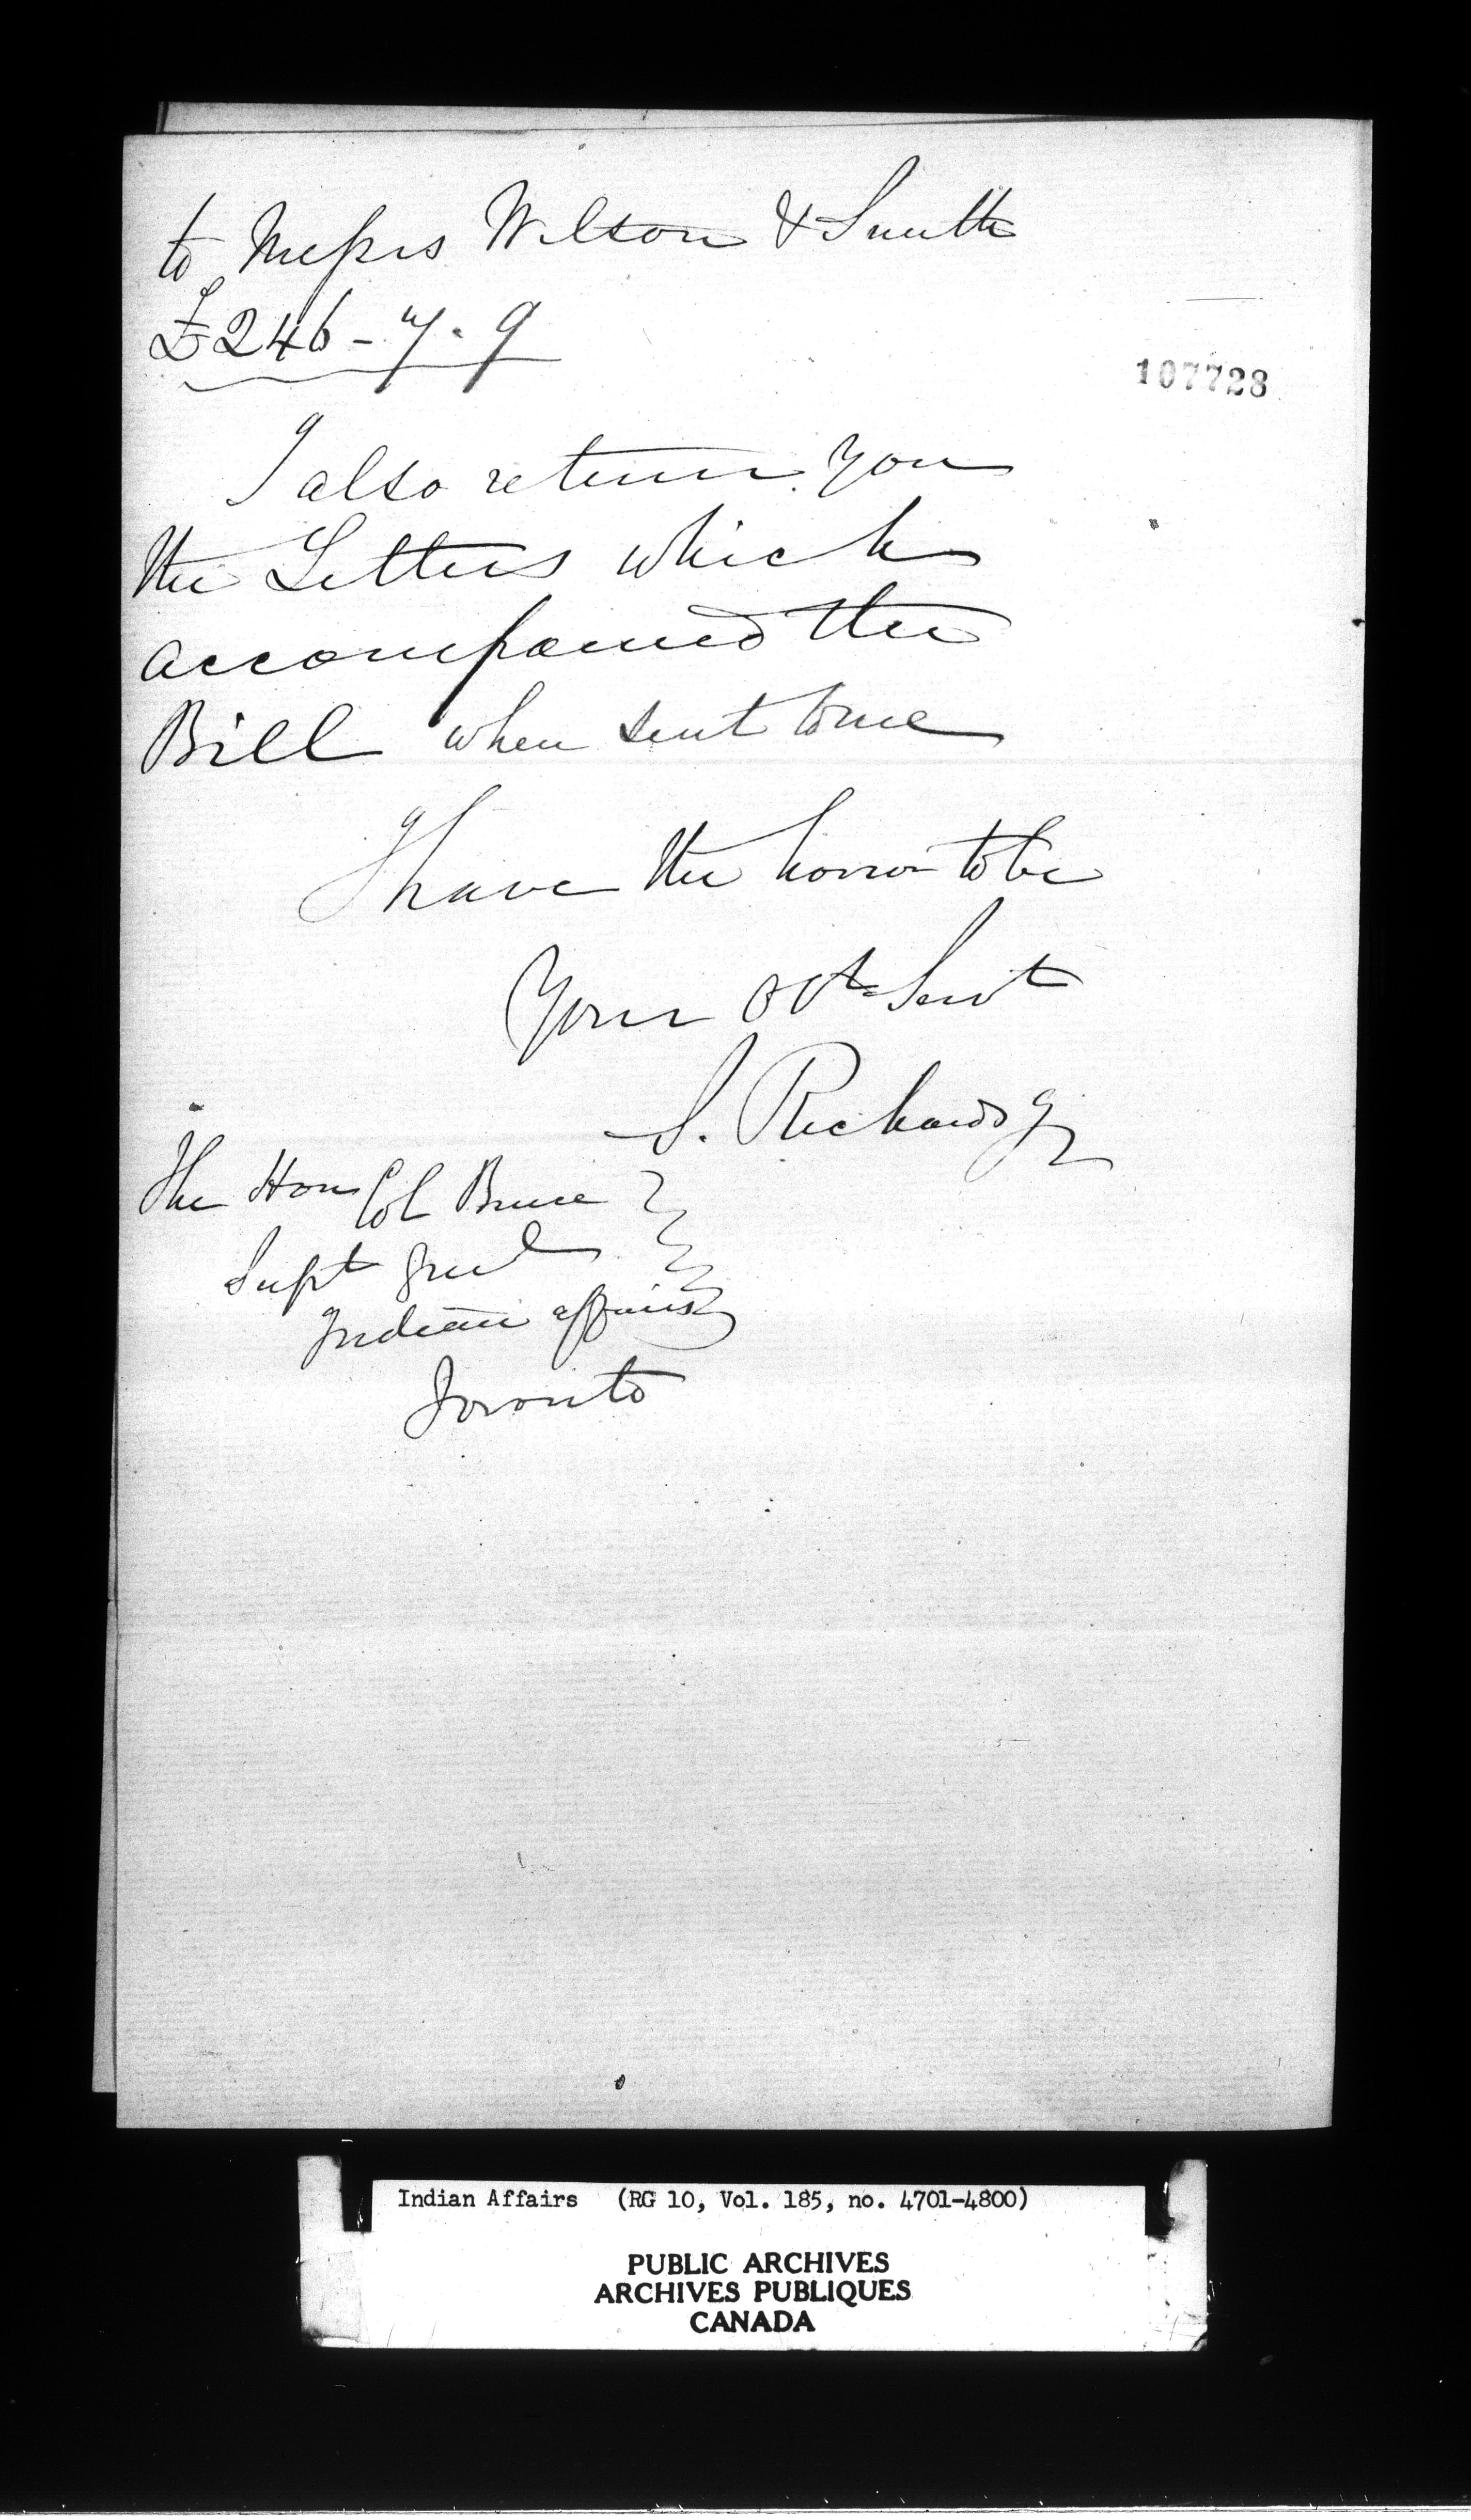 to Messrs Wilson & Smith
£246-7.9
107728
I also return you
the Letters which
accompanied the
Bill when sent to me
I have the honor to be
Your Obt Servt
S. Richards Jr
The Hon Col Bruce
Supt Genl
Indian affairs
Toronto
Indian Affairs (RG 10, Vol. 185, no. 4701-4800)
PUBLIC ARCHIVES
ARCHIVES PUBLIQUES
CANADA